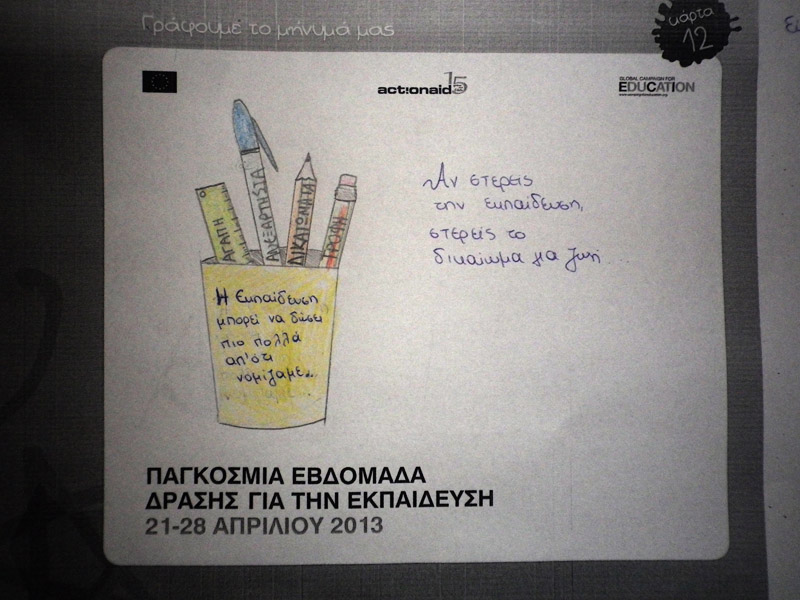 Γράφουμε το μήνυμά μας
κάρτα
12
act!onaid 15
GLOBAL CAMPAIGN FOR
EDUCATION
www.campaignforeducation.org
ΑΓΑΠΗ
ΑΝΕΞΑΡΤΗΣΙΑ
ΔΙΚΑΙΩΜΑΤΑ
ΤΡΟΦΗ
Η Εκπαίδευση
μπορεί να δώσει
πιο πολλά
απ'ότι
νομίζαμε...
Αν στερείς
την εκπαίδευση,
στερείς το
δικαίωμα για ζωή...
ΠΑΓΚΟΣΜΙΑ ΕΒΔΟΜΑΔΑ
ΔΡΑΣΗΣ ΓΙΑ ΤΗΝ ΕΚΠΑΙΔΕΥΣΗ
21-28 ΑΠΡΙΛΙΟΥ 2013